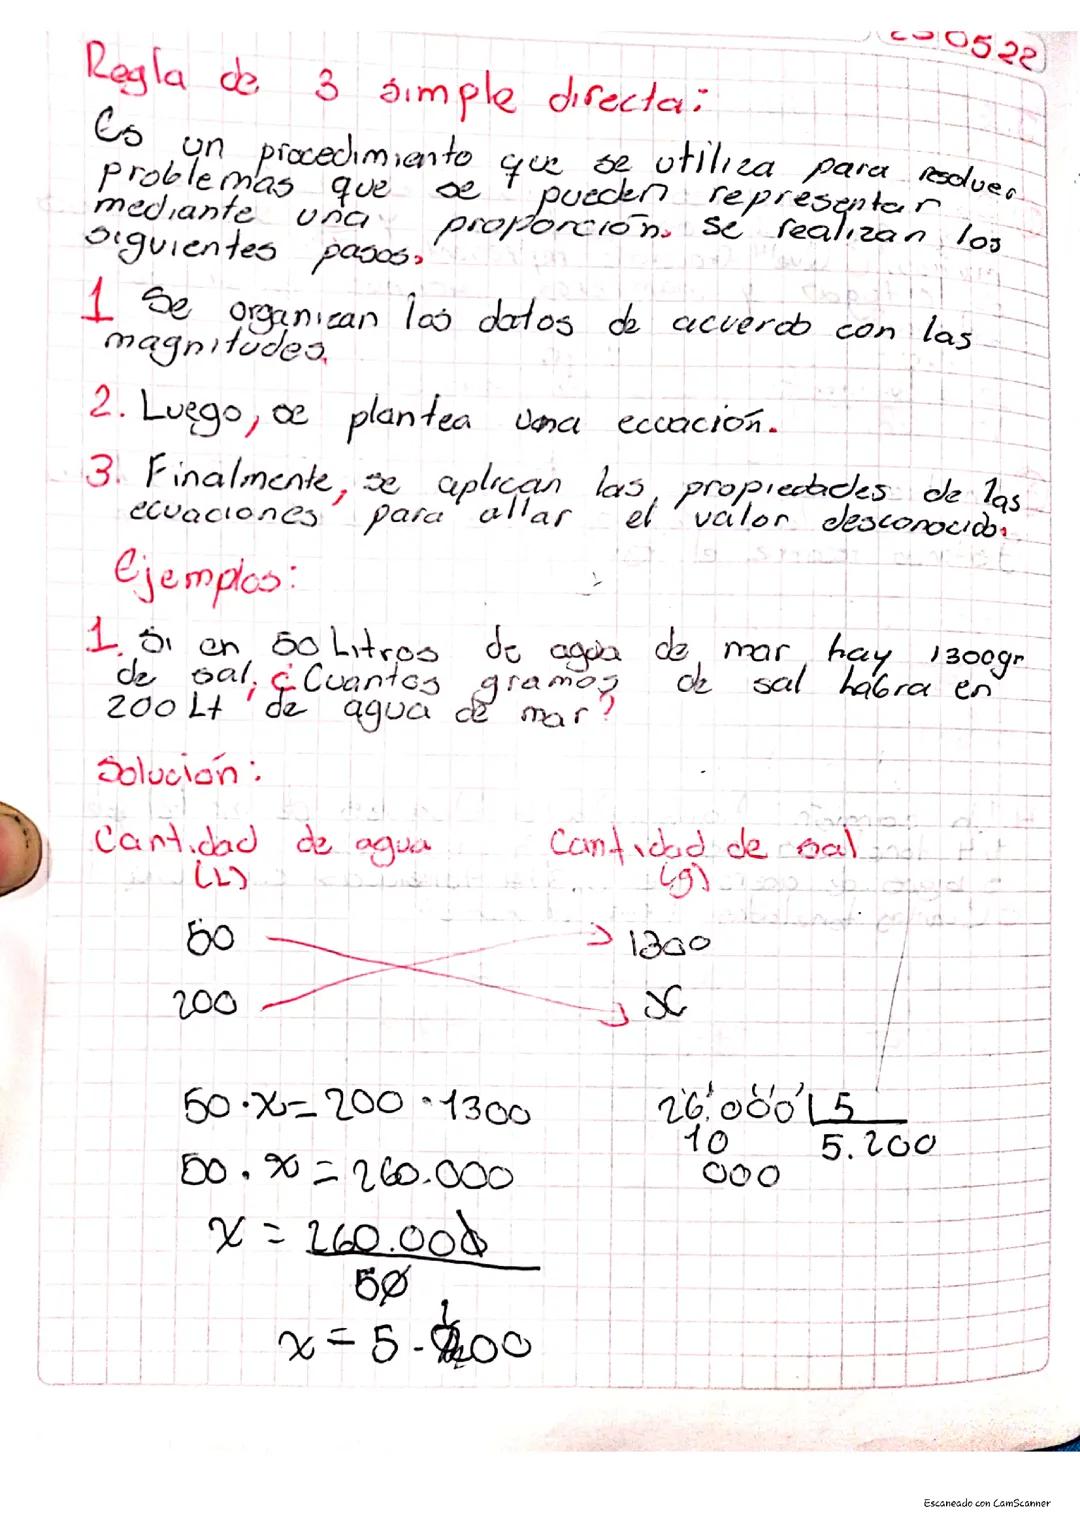 0522
Regla de 3 simple directa:
Es un procedimiento que se utiliza para resolver
problemas que se pueden representar
mediante una proporción. Se realizan los
siguientes pasos.
1 Se organizan los datos de acuerdo con las
magnitudes.
2. Luego, se plantea una ecuación.
3. Finalmente, se aplican las propiedades de las
ecuaciones para allar el valor desconocido.
Ejemplos:
1. Si en 50 Litros de agua de mar hay 1300gr
de sal, ¿Cuantos gramos de sal habra en
200 Lt de agua de mar?
Solución:
Cantidad de agua Cantidad de sal
(L) (g)
50 1300
200 x
50·x=200·1300 26.000 5
10 5.200
50.x=260.000 000
x = 260.000
50
x = 5.200
Escaneado con CamScanner